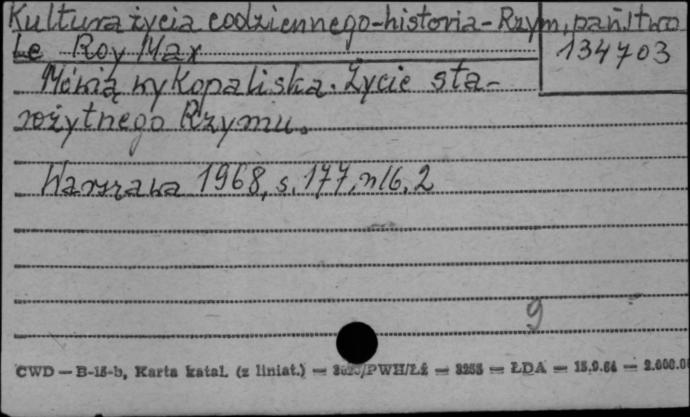 Kultura życia codziennego-historia-Rzym, państwo
Le Roy Max
134703
Mówią wykopaliska. Życie sta-
rożytnego Rzymu.
Warszawa 1968, s. 177, nlb. 2
9
CWD — B-15-b, Karta katal. (z liniat.) — PWH/Łź — 3255 — ŁDA — 15.9.64 — 2.000.0